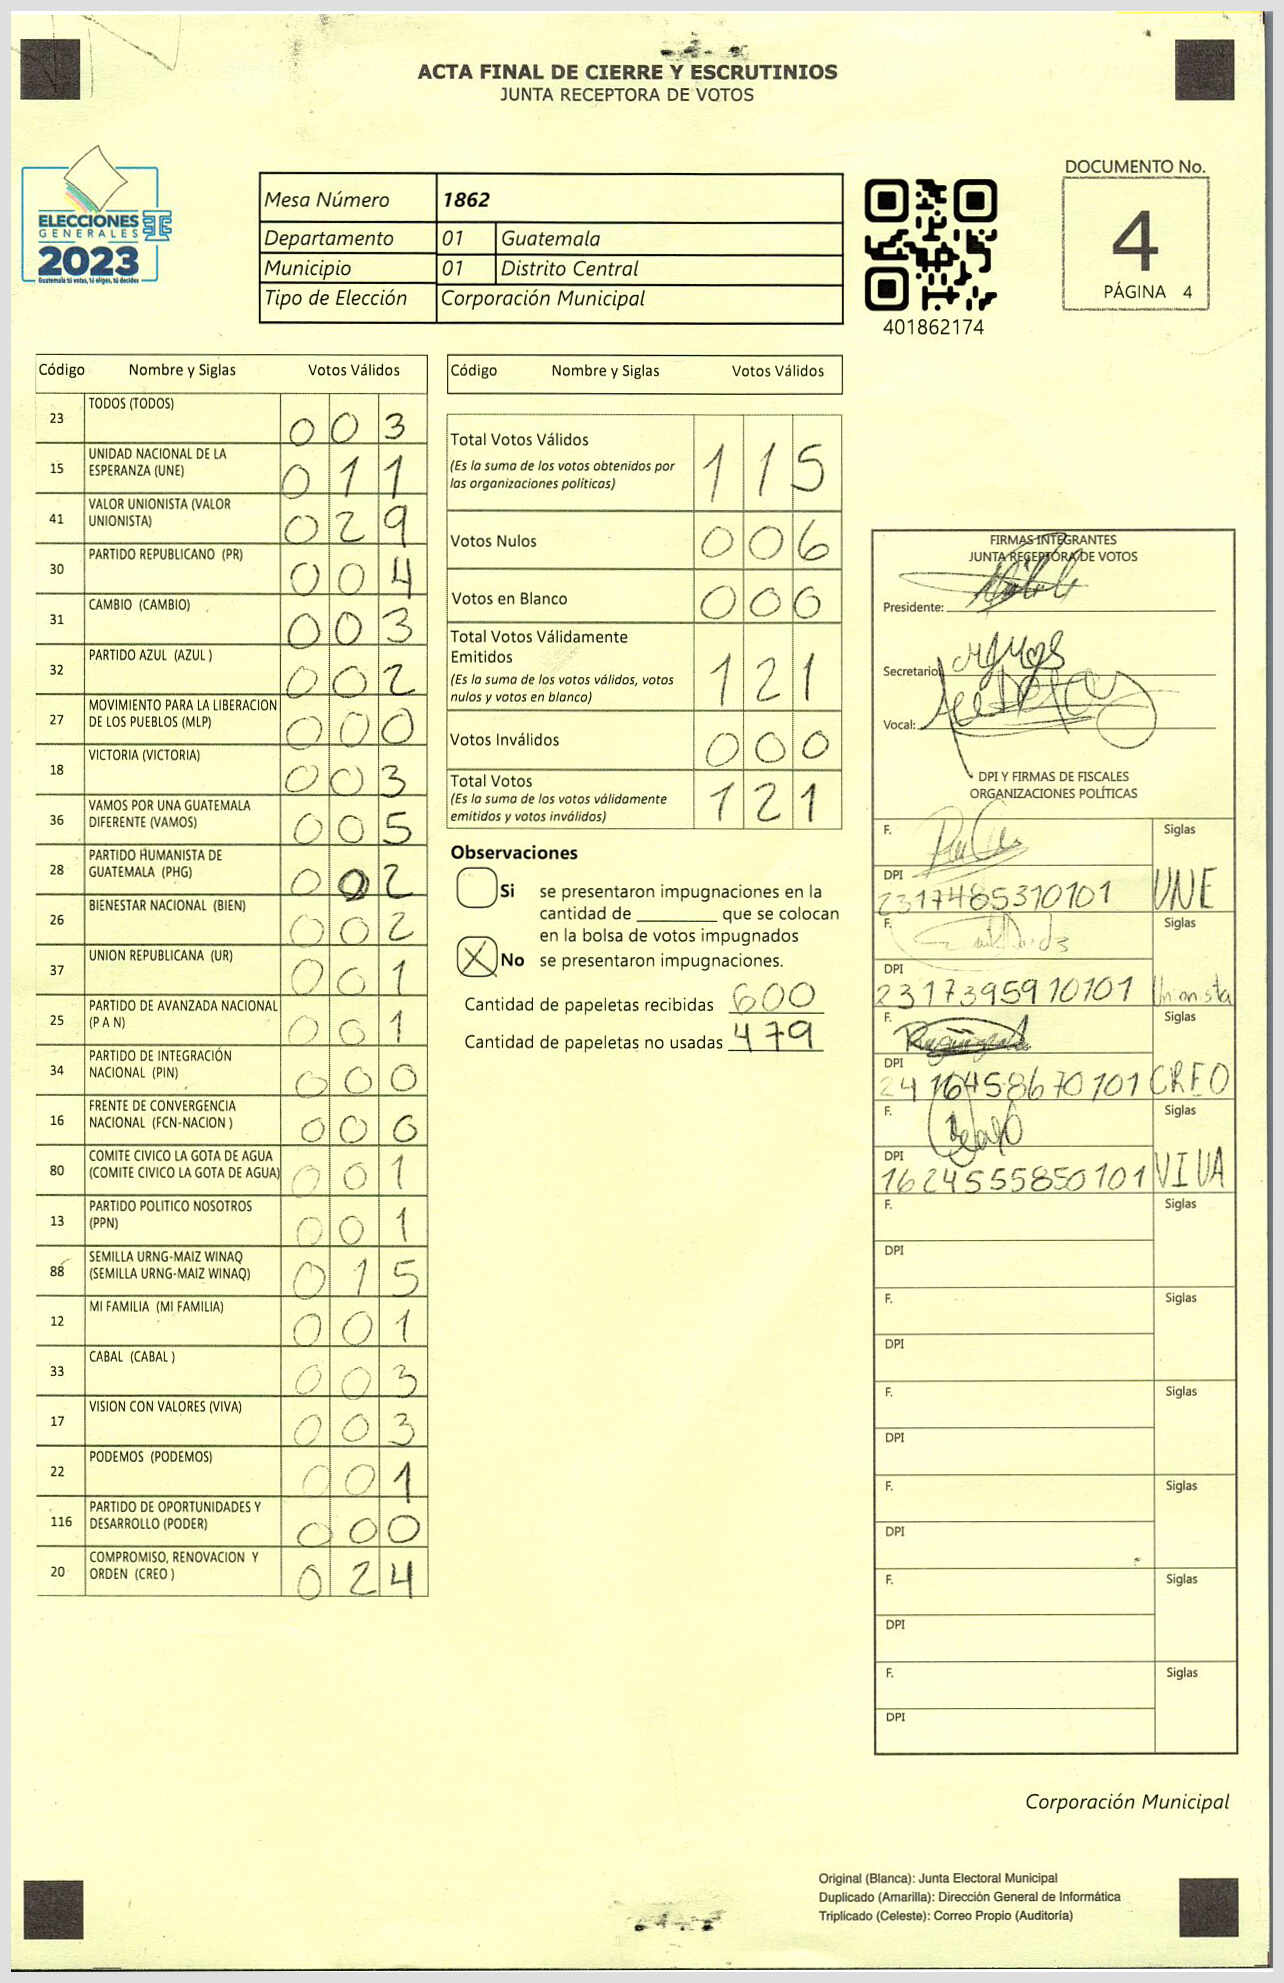 ACTA FINAL DE CIERRE Y ESCRUTINIOS
JUNTA RECEPTORA DE VOTOS
ELECCIONES
GENERALES
2023
Guatemala tú votas, tú eliges, tú decides
Mesa Número 1862
Departamento 01 Guatemala
Municipio 01 Distrito Central
Tipo de Elección Corporación Municipal
401862174
DOCUMENTO No.
4
PÁGINA 4
Código Nombre y Siglas Votos Válidos
23 TODOS (TODOS) 0 0 3
15 UNIDAD NACIONAL DE LA
ESPERANZA (UNE) 0 1 1
41 VALOR UNIONISTA (VALOR
UNIONISTA) 0 2 9
30 PARTIDO REPUBLICANO (PR) 0 0 4
31 CAMBIO (CAMBIO) 0 0 3
32 PARTIDO AZUL (AZUL ) 0 0 2
27 MOVIMIENTO PARA LA LIBERACION
DE LOS PUEBLOS (MLP) 0 0 0
18 VICTORIA (VICTORIA) 0 0 3
36 VAMOS POR UNA GUATEMALA
DIFERENTE (VAMOS) 0 0 5
28 PARTIDO HUMANISTA DE
GUATEMALA (PHG) 0 0 2
26 BIENESTAR NACIONAL (BIEN) 0 0 2
37 UNION REPUBLICANA (UR) 0 0 1
25 PARTIDO DE AVANZADA NACIONAL
(P A N) 0 0 1
34 PARTIDO DE INTEGRACIÓN
NACIONAL (PIN) 0 0 0
16 FRENTE DE CONVERGENCIA
NACIONAL (FCN-NACION ) 0 0 0
80 COMITE CIVICO LA GOTA DE AGUA
(COMITE CIVICO LA GOTA DE AGUA) 0 0 1
13 PARTIDO POLITICO NOSOTROS
(PPN) 0 0 1
88 SEMILLA URNG-MAIZ WINAQ
(SEMILLA URNG-MAIZ WINAQ) 0 1 5
12 MI FAMILIA (MI FAMILIA) 0 0 1
33 CABAL (CABAL ) 0 0 3
17 VISION CON VALORES (VIVA) 0 0 3
22 PODEMOS (PODEMOS) 0 0 1
116 PARTIDO DE OPORTUNIDADES Y
DESARROLLO (PODER) 0 0 0
20 COMPROMISO, RENOVACION Y
ORDEN (CREO ) 0 2 4
Código Nombre y Siglas Votos Válidos
Total Votos Válidos 1 1 5
(Es la suma de los votos obtenidos por
las organizaciones políticas)
Votos Nulos 0 0 6
Votos en Blanco 0 0 0
Total Votos Válidamente
Emitidos 1 2 1
(Es la suma de los votos válidos, votos
nulos y votos en blanco)
Votos Inválidos 0 0 0
Total Votos 1 2 1
(Es la suma de los votos válidamente
emitidos y votos inválidos)
Observaciones
Si se presentaron impugnaciones en la
cantidad de ________ que se colocan
en la bolsa de votos impugnados
X No se presentaron impugnaciones.
Cantidad de papeletas recibidas 600
Cantidad de papeletas no usadas 479
FIRMAS INTEGRANTES
JUNTA RECEPTORA DE VOTOS
Presidente:
Secretario:
Vocal:
DPI Y FIRMAS DE FISCALES
ORGANIZACIONES POLÍTICAS
F. Siglas
DPI
2317485310101 UNE
F. Siglas
DPI
2317395910101 Unionista
F. Siglas
DPI
2416458670101 CREO
F. Siglas
DPI
1624555850101 VIVA
F. Siglas
DPI
F. Siglas
DPI
F. Siglas
DPI
F. Siglas
DPI
F. Siglas
DPI
F. Siglas
DPI
Corporación Municipal
Original (Blanca): Junta Electoral Municipal
Duplicado (Amarilla): Dirección General de Informática
Triplicado (Celeste): Correo Propio (Auditoría)